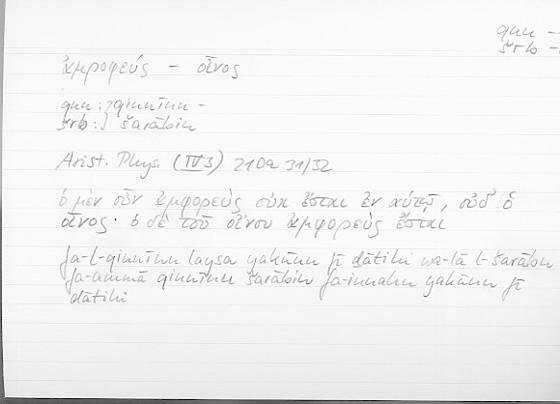 qnn -
šrb -
ἀμφορεύς – οἶνος
qnn : } qinnīnu -
šrb : } šarābin
Arist. Phys. (IV 3) 210a 31/32
ὁ μὲν οὖν ἀμφορεὺς οὐκ ἔσται ἐν αὑτῷ, οὐδ' ὁ
οἶνος· ὁ δὲ τοῦ οἴνου ἀμφορεὺς ἔσται
fa-l-qinnīnu laysa yakūnu fī ḏātihi wa-lā l-šarābu
fa-ammā qinnīnu šarābin fa-innahu yakūnu fī
ḏātihi